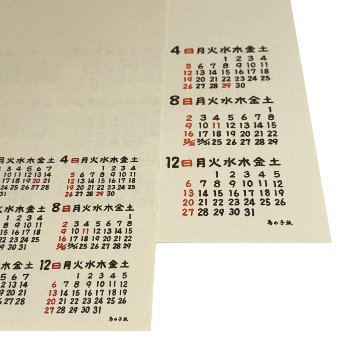 4 日月火水木金土
1 2 3 4
5 6 7 8 9 10 11
12 13 14 15 16 17 18
19 20 21 22 23 24 25
26 27 28 29 30
8 日月火水木金土
1
2 3 4 5 6 7 8
9 10 11 12 13 14 15
16 17 18 19 20 21 22
23/30 24/31 25 26 27 28 29
12 日月火水木金土
1 2 3 4 5
6 7 8 9 10 11 12
13 14 15 16 17 18 19
20 21 22 23 24 25 26
27 28 29 30 31
4 日月火水木金土
1 2 3 4
5 6 7 8 9 10 11
12 13 14 15 16 17 18
19 20 21 22 23 24 25
26 27 28 29 30
8 日月火水木金土
1
2 3 4 5 6 7 8
9 10 11 12 13 14 15
16 17 18 19 20 21 22
23/30 24/31 25 26 27 28 29
12 日月火水木金土
1 2 3 4 5
6 7 8 9 10 11 12
13 14 15 16 17 18 19
20 21 22 23 24 25 26
27 28 29 30 31